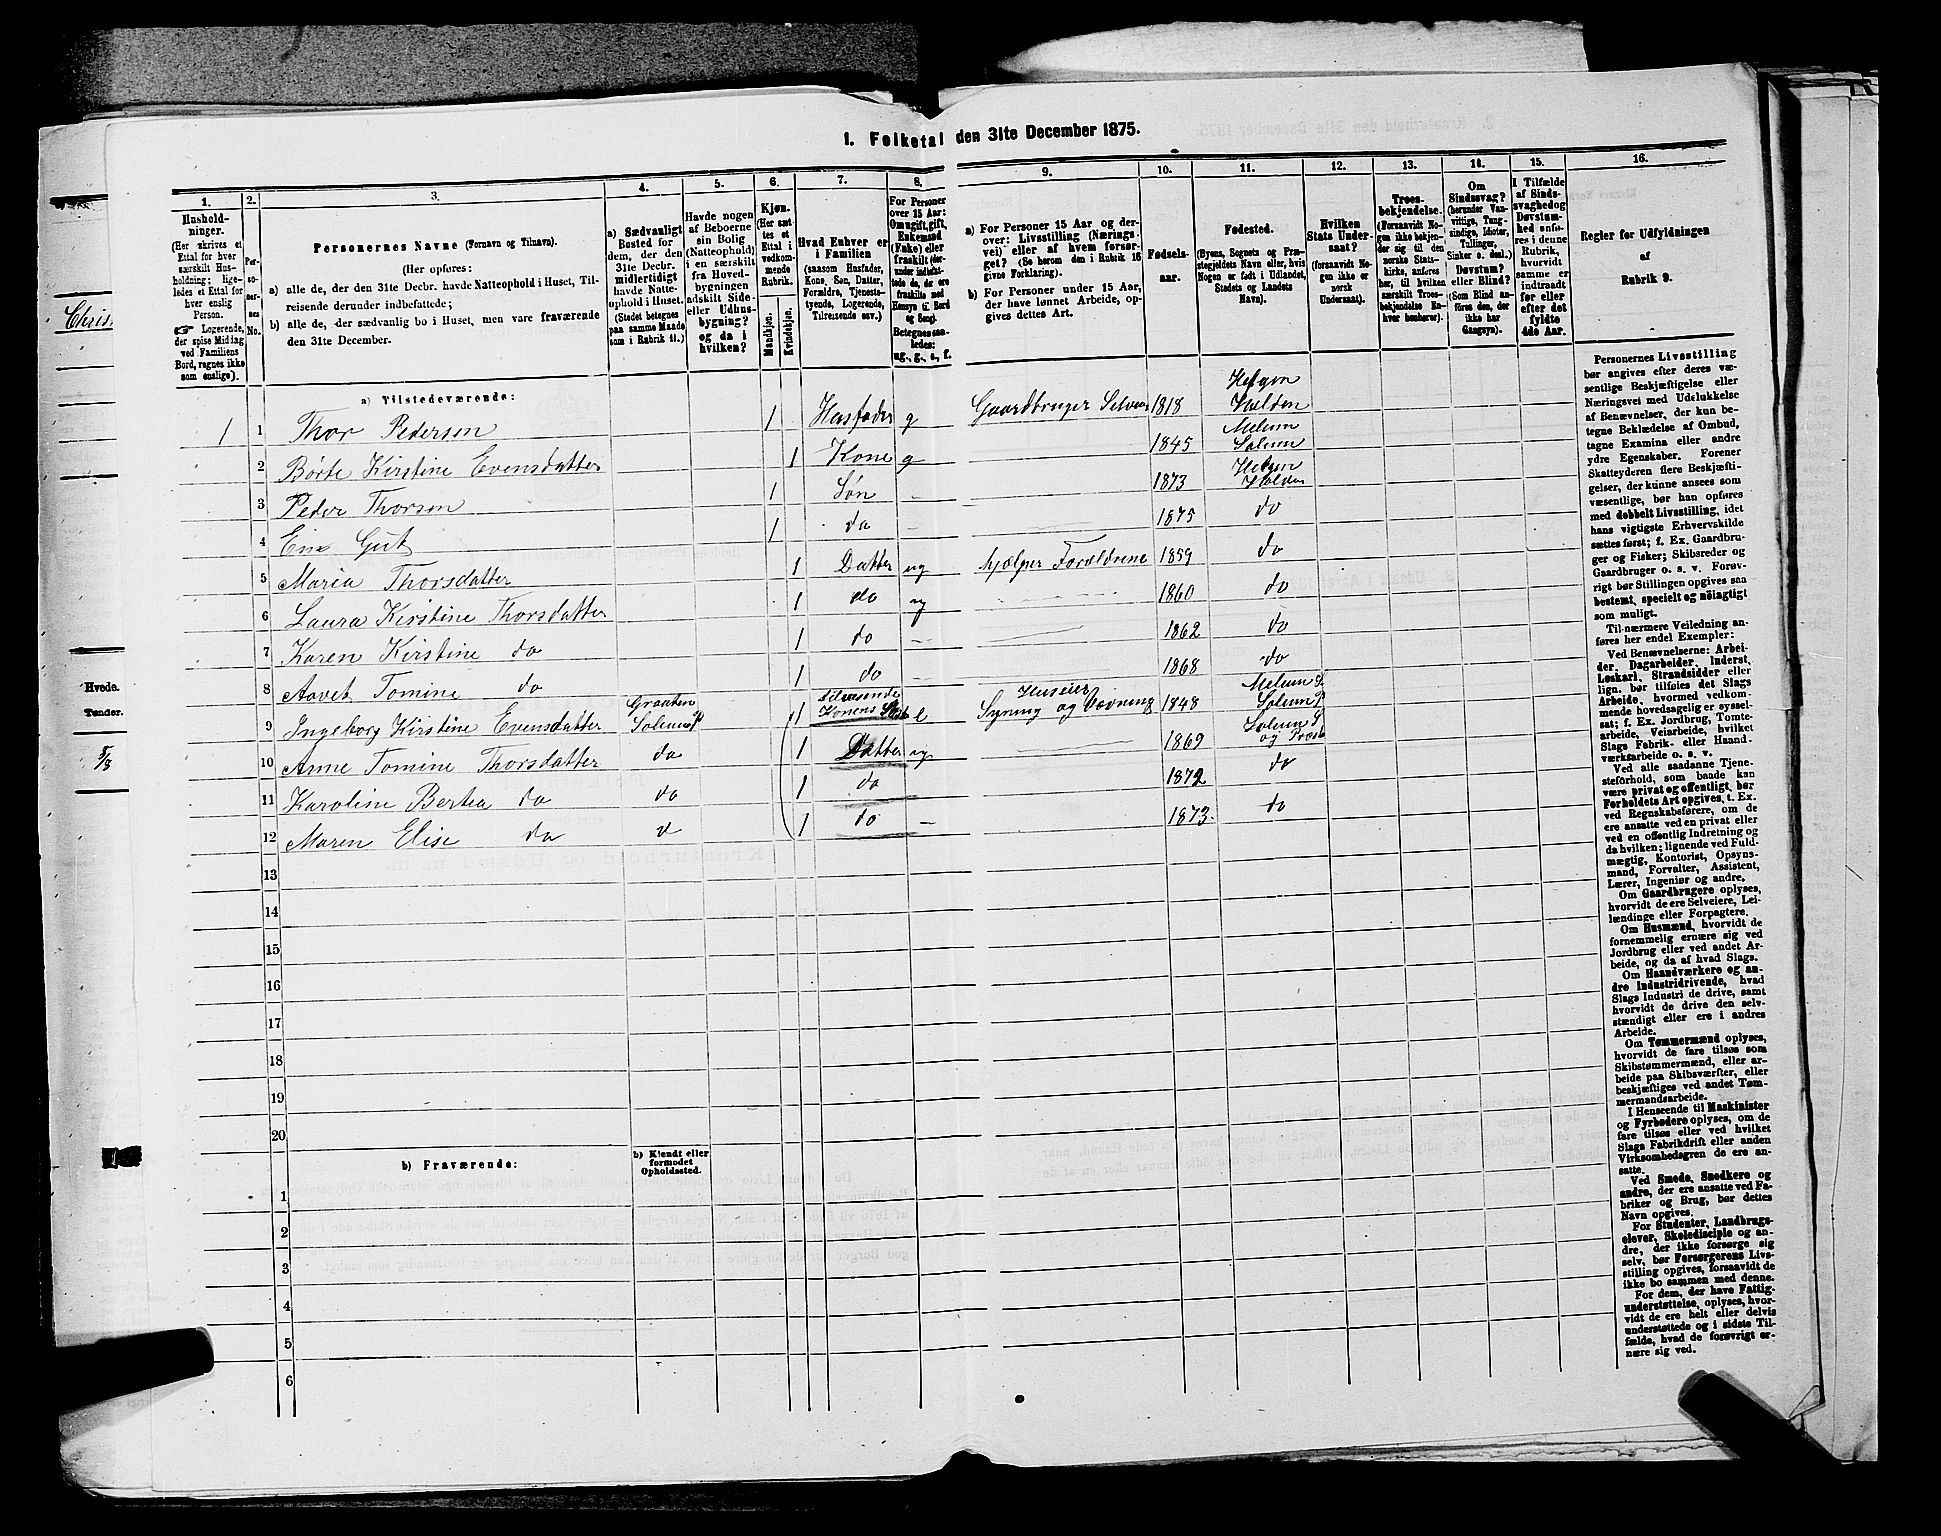 1. Folketal den 31te December 1875.
1.
Hushold-
ninger.
(Her skrives et
Ettal for hver
særskilt Hus-
holdning; lige-
ledes et Ettal for
hver enslig
Person.
☞ Logerende,
der spise Middag
ved Familiens
Bord, regnes ikke
som enslige).
2.
Per-
so-
ner-
nes
No.
3.
Personernes Navne (Fornavn og Tilnavn).
(Her opføres:
a) alle de, der den 31te Decbr. havde Natteophold i Huset, Til-
reisende derunder indbefattede;
b) alle de, der sædvanlig bo i Huset, men vare fraværende
den 31te December.
4.
a) Sædvanligt
Bosted for
dem, der den
31te Decbr.
midlertidigt
havde Natte-
ophold i Huset.
(Stedet betegnes
paa samme Maade
som i Rubrik 11.)
5.
Havde nogen
af Beboerne
sin Bolig
(Natteophold)
i en særskilt
fra Hoved-
bygningen
adskilt Side-
eller Udhus-
bygning?
og da i
hvilken?
6.
Kjøn.
(Her sæt-
tes et
Ettal i
vedkom-
mende
Rubrik.
Mandkjøn.
Kvindekjøn.
7.
Hvad Enhver er
i Familien
(saasom Husfader,
Kone, Søn, Datter,
Forældre, Tjeneste-
tyende, Logerende,
Tilreisende osv.)
8.
For Personer
over 15 Aar:
Om ugift, gift,
Enkemand
(Enke) eller
fraskilt (der-
under indbefat-
tede de, der ere
fraskilte med
Hensyn til Bord
og Seng).
Betegnes saa-
ledes:
ug., g., e., f.
9.
a) For Personer 15 Aar og der-
over: Livsstilling (Nærings-
vei) eller af hvem forsør-
get? (Se herom den i Rubrik 16
givne Forklaring).
b) For Personer under 15 Aar,
der have lønnet Arbeide, op-
gives dettes Art.
10.
Fødsels-
aar.
11.
Fødested.
(Byens, Sognets og Præ-
stegjeldets Navn eller, hvis
Nogen er født i Udlandet,
Stedets og Landets
Navn).
12.
Hvilken
Stats Under-
saat?
(forsaavidt No-
gen ikke er
norsk
Undersaat).
13.
Troes-
bekjendelse.
(Forsaavidt No-
gen ikke bekjen-
der sig til den
norske Stats-
kirke, anføres
her, til hvilken
særskilt Troes-
bekjendelse En-
hver henhører).
14.
Om
Sindssvag?
(herunder Van-
vittige, Tung-
sindige, Idioter,
Tullinger,
Sinker o. desl.)
Døvstum?
eller Blind?
(Som Blind an-
føres den, der
ikke har
Gangsyn).
15.
I Tilfælde
af Sinds-
svaghed og
Døvstum-
hed anfø-
res i denne
Rubrik,
hvorvidt
samme er
indtraadt
før eller
efter det
fyldte
4de Aar.
16.
Regler for Udfyldningen
af
Rubrik 9.
a) Tilstedeværende:
1 1 Thor Pedersen 1 Husfader g Gaardbruger Selveier 1818 Helgen Holden
2 Børte Kirstine Evensdatter 1 Kone g 1845 Melum Solum
3 Peder Thorsen 1 Søn 1873 Helgen Holden
4 En Gut 1 do 1875 do
5 Maria Thorsdatter 1 Datter ug hjælper Forældrene 1859 do
6 Laura Kirstine Thorsdatter 1 do ug 1860 do
7 Karen Kirstine do 1 do 1862 do
8 Aavet Tomine do 1 do 1868 do
9 Ingeborg Kirstine Evensdatter Graaten Solum P 1 Tilreisende Konens e Huseier Syning og Vævning 1848 Melum S. Solum P
10 Anne Tomine Thorsdatter do 1 Datter ug 1869 Solum S og Præst
11 Karoline Bertea do do 1 do 1872 do
12 Maren Elise do d 1 do 1873. do
13
14
15
16
17
18
19
20
b) Fraværende: b) Kjendt eller
formodet
Opholdssted.
1
2
3
4
5
6
Personernes Livsstilling
bør angives efter deres væ-
sentlige Beskjæftigelse eller
Næringsvei med Udelukkelse
af Benævnelser, der kun be-
tegne Beklædelse af Ombud,
tagne Examina eller andre
ydre Egenskaber. Forener
Skatteyderen flere Beskjæfti-
gelser, der kunne ansees som
væsentlige, bør han opføres
med dobbelt Livsstilling, idet
hans vigtigste Erhvervskilde
sættes først; f. Ex. Gaardbru-
ger og Fisker; Skibsreder og
Gaardbruger o. s. v. Forøv-
rigt bør Stillingen opgives saa
bestemt, specielt og nøiagtigt
som muligt.
Til nærmere Veiledning an-
føres her endel Exempler:
Ved Benævnelserne: Arbei-
der, Dagarbeider, Inderst,
Løskarl, Strandsidder eller
lign. bør tilføies det Slags
Arbeide, hvormed vedkom-
mende hovedsagelig er syssel-
sat; f. Ex. Jordbrug, Tomte-
arbeide, Veiarbeide, hvilket
Slags Fabrik- eller Haand-
værksarbeide o. s. v.
Ved alle saadanne Tjene-
steforhold, som baade kan
være privat og offentligt, bør
Forholdets Art opgives, t. Ex.
ved Regnskabsførere, om de
ere ansatte ved en privat eller
ved en offentlig Indretning og
da hvilken; lignende ved Fuld-
mægtig, Kontorist, Opsyns-
mand, Forvalter, Assistent,
Lærer, Ingeniør og andre.
Om Gaardbrugere oplyses,
hvorvidt de ere Selveiere, Lei-
lændinge eller Forpagtere.
Om Husmænd, hvorvidt de
fornemmelig ernære sig ved
Jordbrug eller ved andet Ar-
beide, og da af hvad Slags.
Om Haandværkere og an-
dre Industridrivende, hvad
Slags Industri de drive, samt
hvorvidt de drive den selv-
stændigt eller ere i andres
Arbeide.
Om Tømmermænd oplyses,
hvorvidt de fare tilsøs som
Skibstømmermænd, eller ar-
beide paa Skibsværfter, eller
beskjæftiges ved andet Tøm-
mermandsarbeide.
I Henseende til Maskinister
og Fyrbødere oplyses, om de
fare tilsøs eller ved hvilket
Slags Fabrikdrift eller anden
Virksomhedsgren de ere an-
satte.
Ved Smede, Snedkere og
andre, der ere ansatte ved Fa-
briker og Brug, bør dettes
Navn opgives.
For Studenter, Landbrugs-
elever, Skoledisciple og an-
dre, der ikke forsørge sig
selv, bør Forsørgerens Livs-
stilling opgives, forsaavidt de
ikke bo sammen med denne.
For dem, der have Fattig-
understøttelse, oplyses, hvor-
vidt de ere helt eller delvis
understøttede og i sidste Til-
fælde, hvad de forøvrigt er-
nære sig ved.
Hvede.
Tønder.